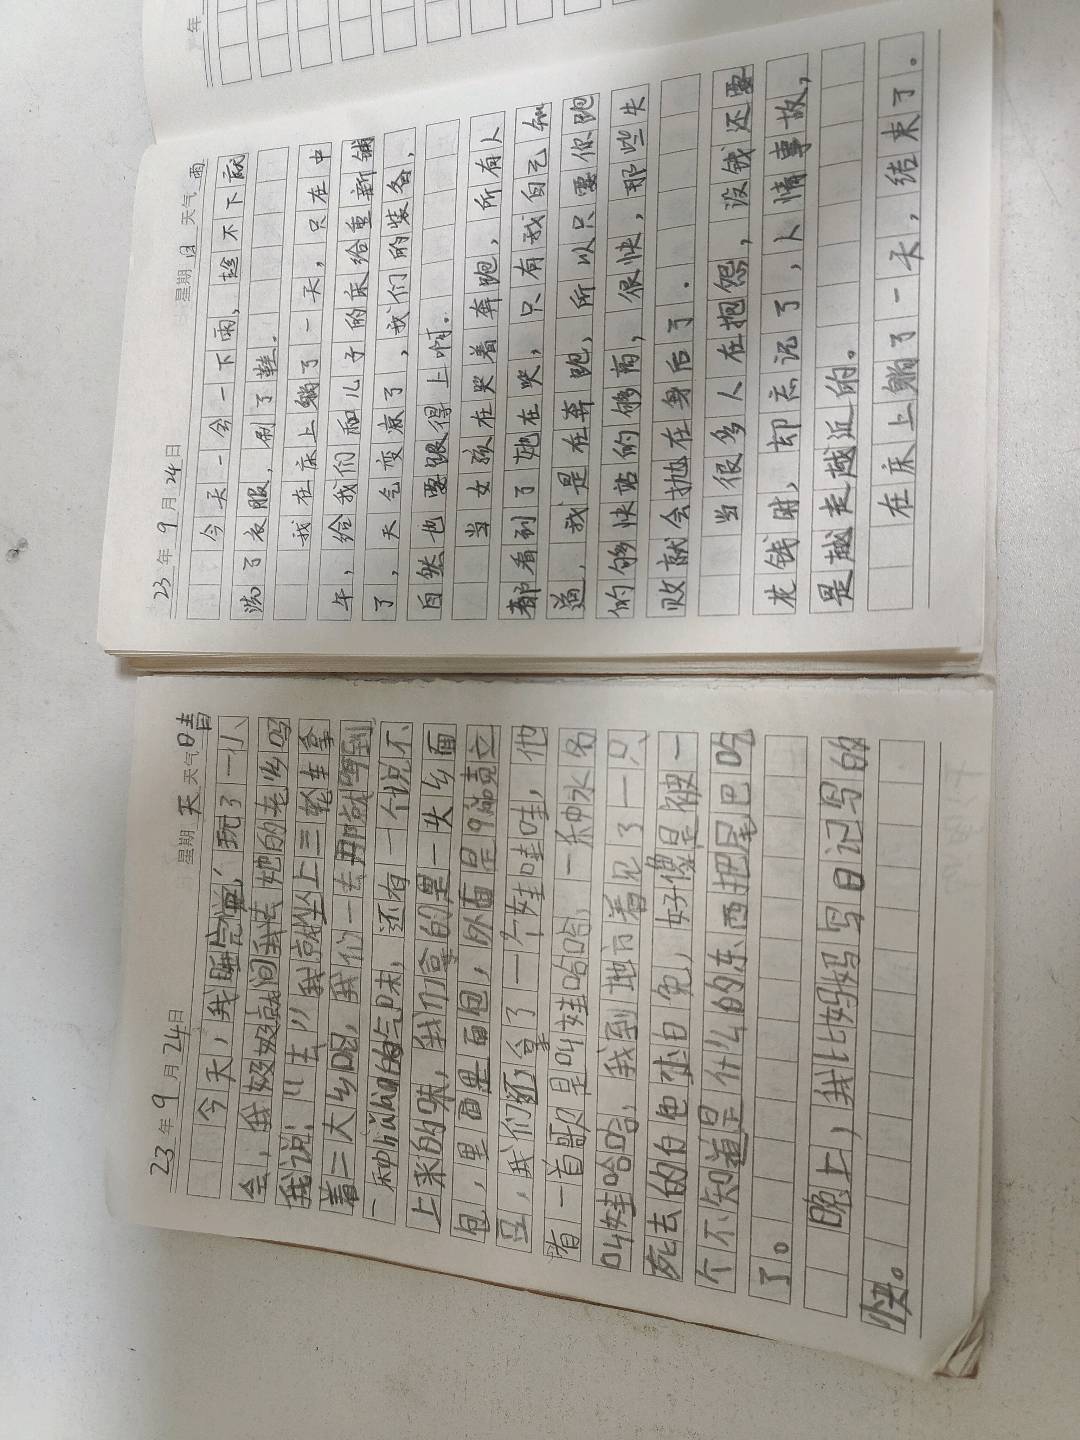 23年9月24日 星期天 天气晴
今天，我睡完觉，玩了一小
会，我奶奶就问我去她的老乡吗
我说："去"我就坐上三轮车拿
着二大乡吧，我们一去那就闻到
一种的气味，还有一个说不
上来的味，我们拿的是一头乡面
包，里面果面包，外面是
豆，我们还拿了一个娃哇哇，他
有一首歌是叫娃哈哈，一种水名
叫娃哈哈，我到地方着见了一只
死去的白色 白兔，好像是被一
个不知道是什么的东西把尾巴吃
了。
晚上，我比妈妈写日记写的
快。
23年9月24日 星期日 天气雨
今天一会一下雨，趁不下就
洗了衣服，刷了鞋。
我在床上躺了一天，只在中
午，给我们和儿子的床给重新铺
了，天气变凉了，我们的装备，
自然也要跟得上啊。
当女孩在哭着奔跑，所有人
都看到了她在哭，只有我自己知
道，我是在奔跑，所以只要你跑
的够快站的够高，很快，那些失
败就会抛在身后了．
当很多人在抱怨，没钱还要
花钱时，却忘记了，人情事故，
是越走越近的。
在床上躺了一天，结束了。